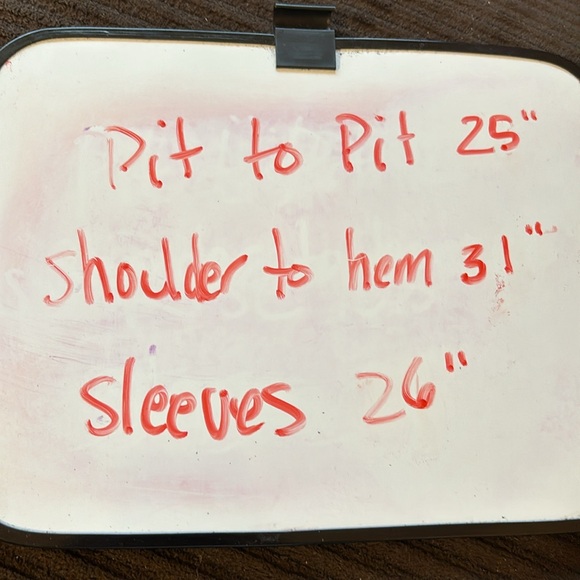 Pit to Pit 25"
shoulder to hem 31"
sleeves 26"